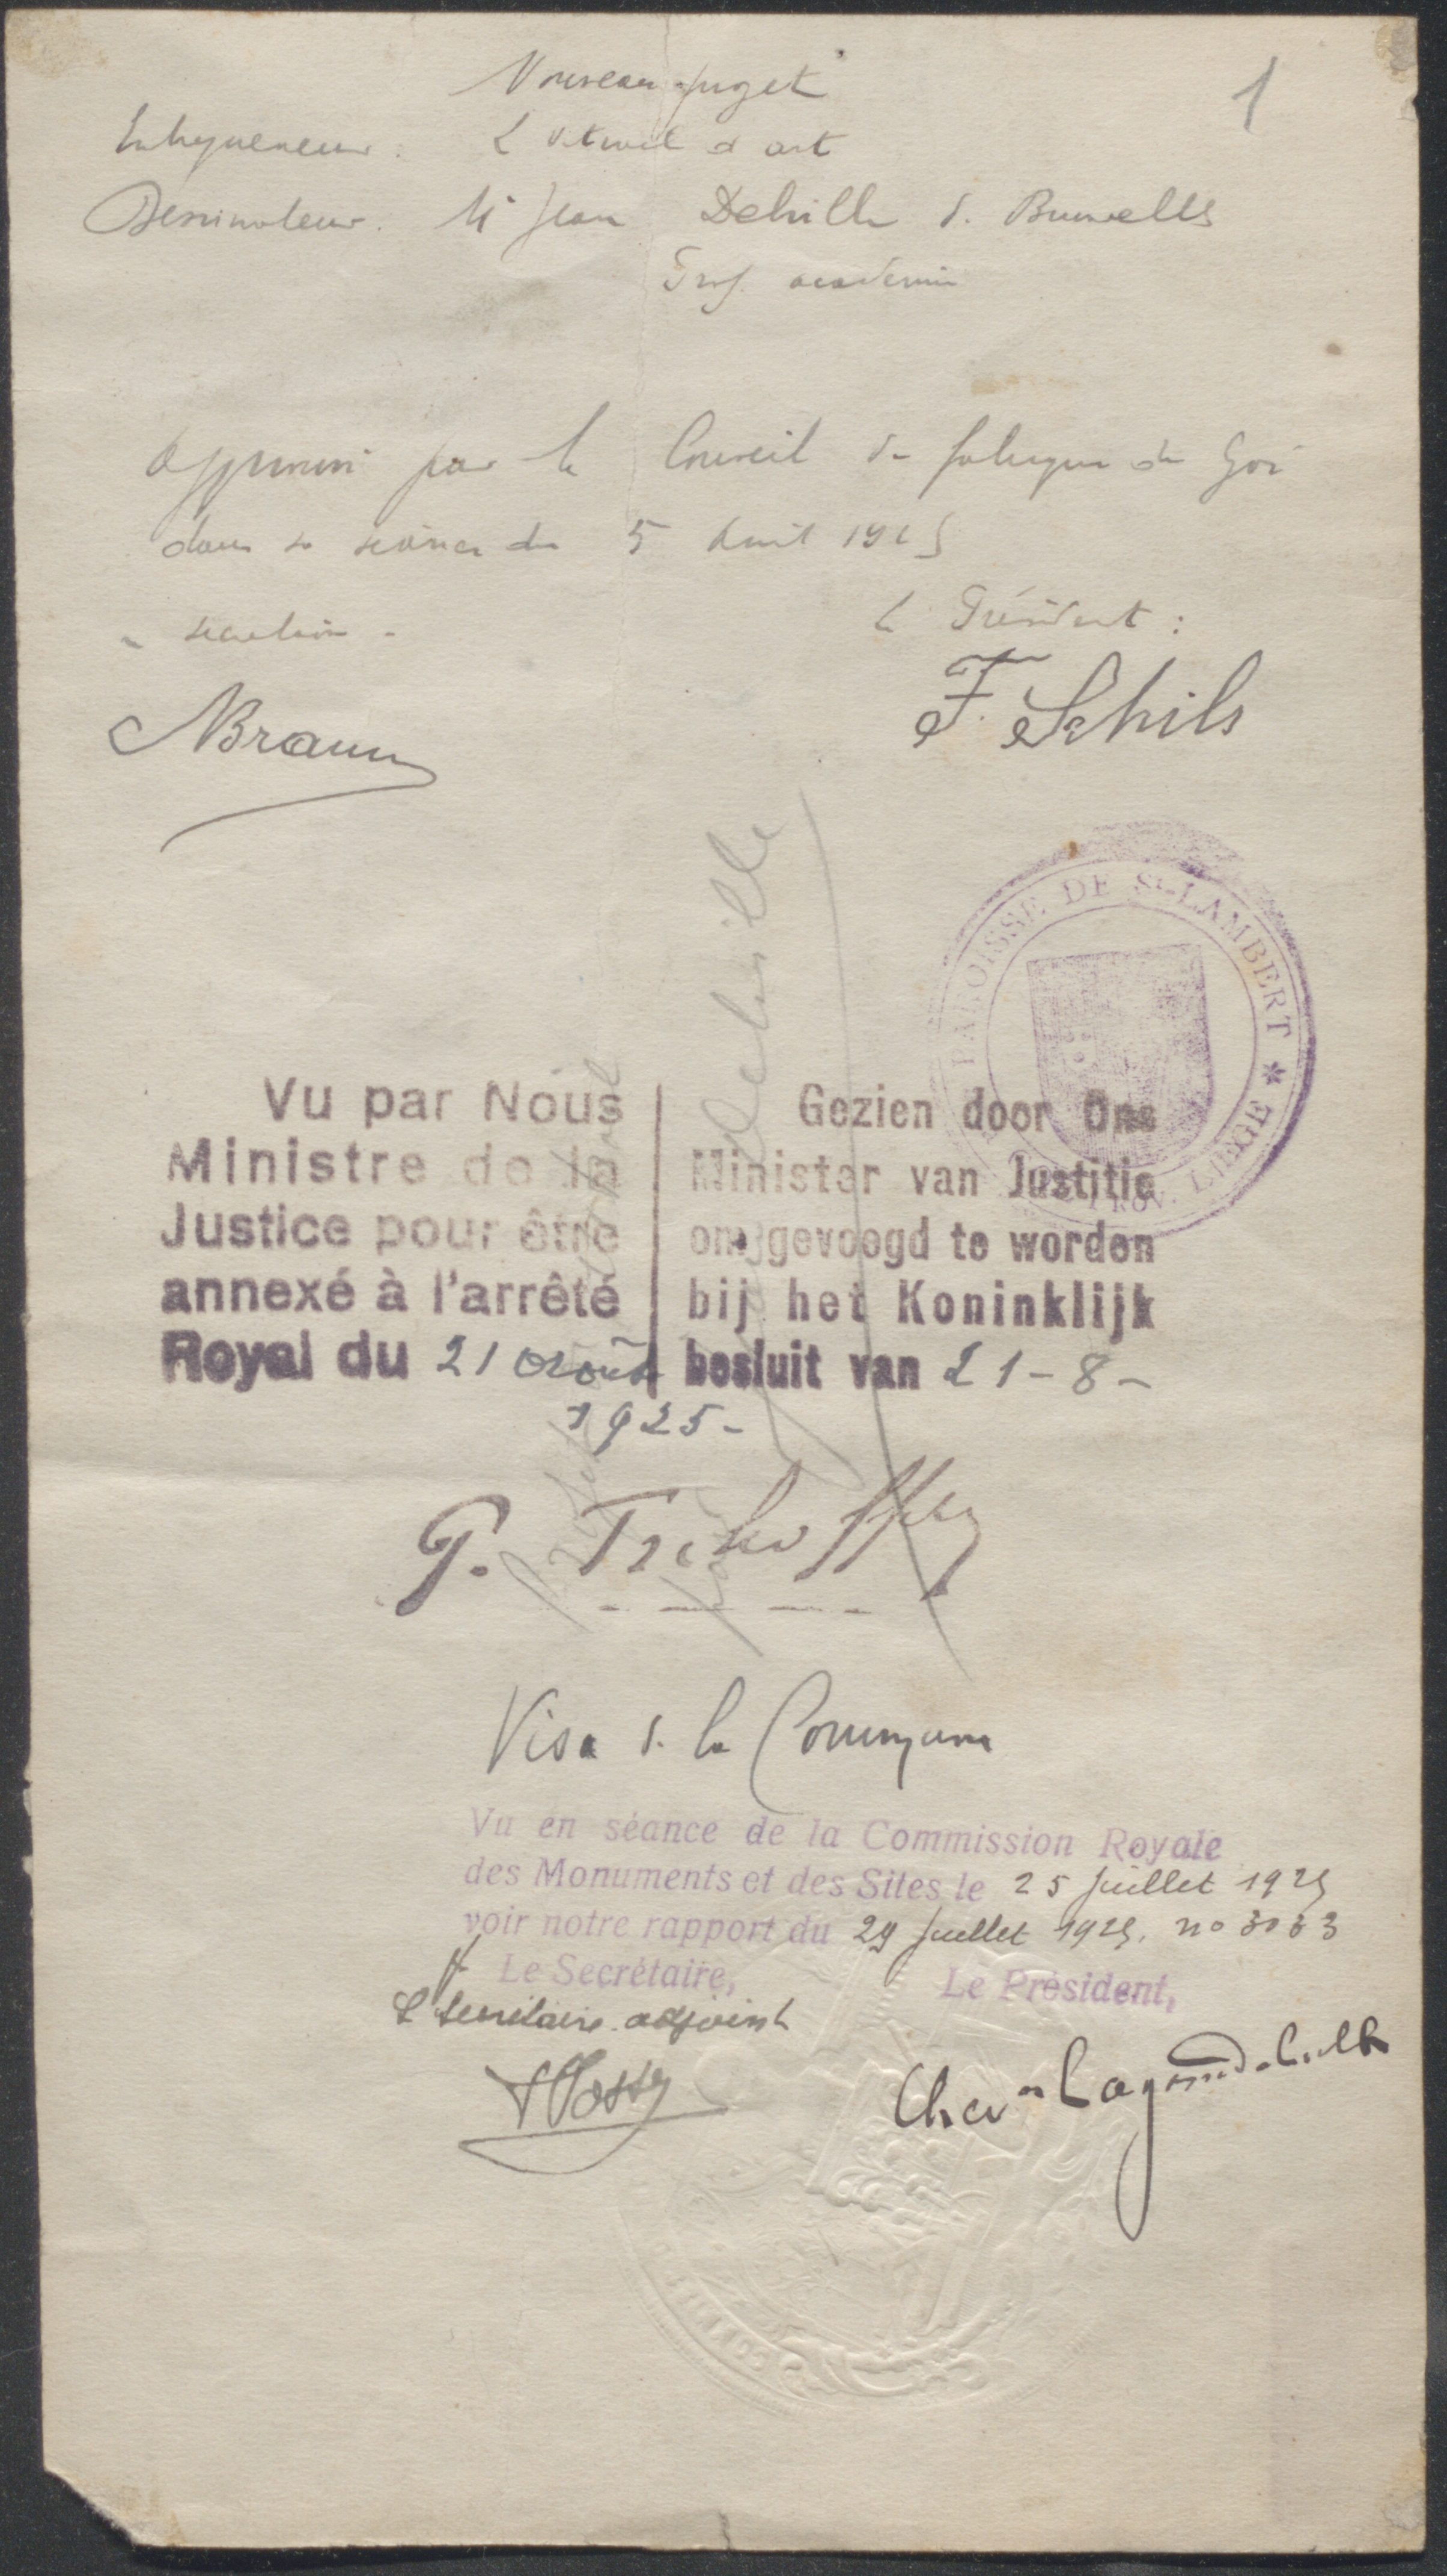 1
Nouveau projet
Entrepreneur : Le Vitrail d'art
Dessinateur. Mr Jean Delville de Bruxelles
Prof. académie
Approuvé par le Conseil de fabrique de
dans sa séance du 5 1925
secrétaire -
Le Président :
NBraun
F. Schils
PAROISSE DE St-LAMBERT * PROV. LIEGE
Vu par Nous
Ministre de la
Justice pour être
annexé à l'arrêté
Royal du 21 août
1925-
Gezien door Ons
Minister van Justitie
om gevoegd te worden
bij het Koninklijk
besluit van 21-8-
Visa de la
Vu en séance de la Commission Royale
des Monuments et des Sites le 25 juillet 1925
voir notre rapport du 29 juillet 1925. no 3033
Le Secrétaire,
Le Président,
Le Secrétaire-adjoint
Chev